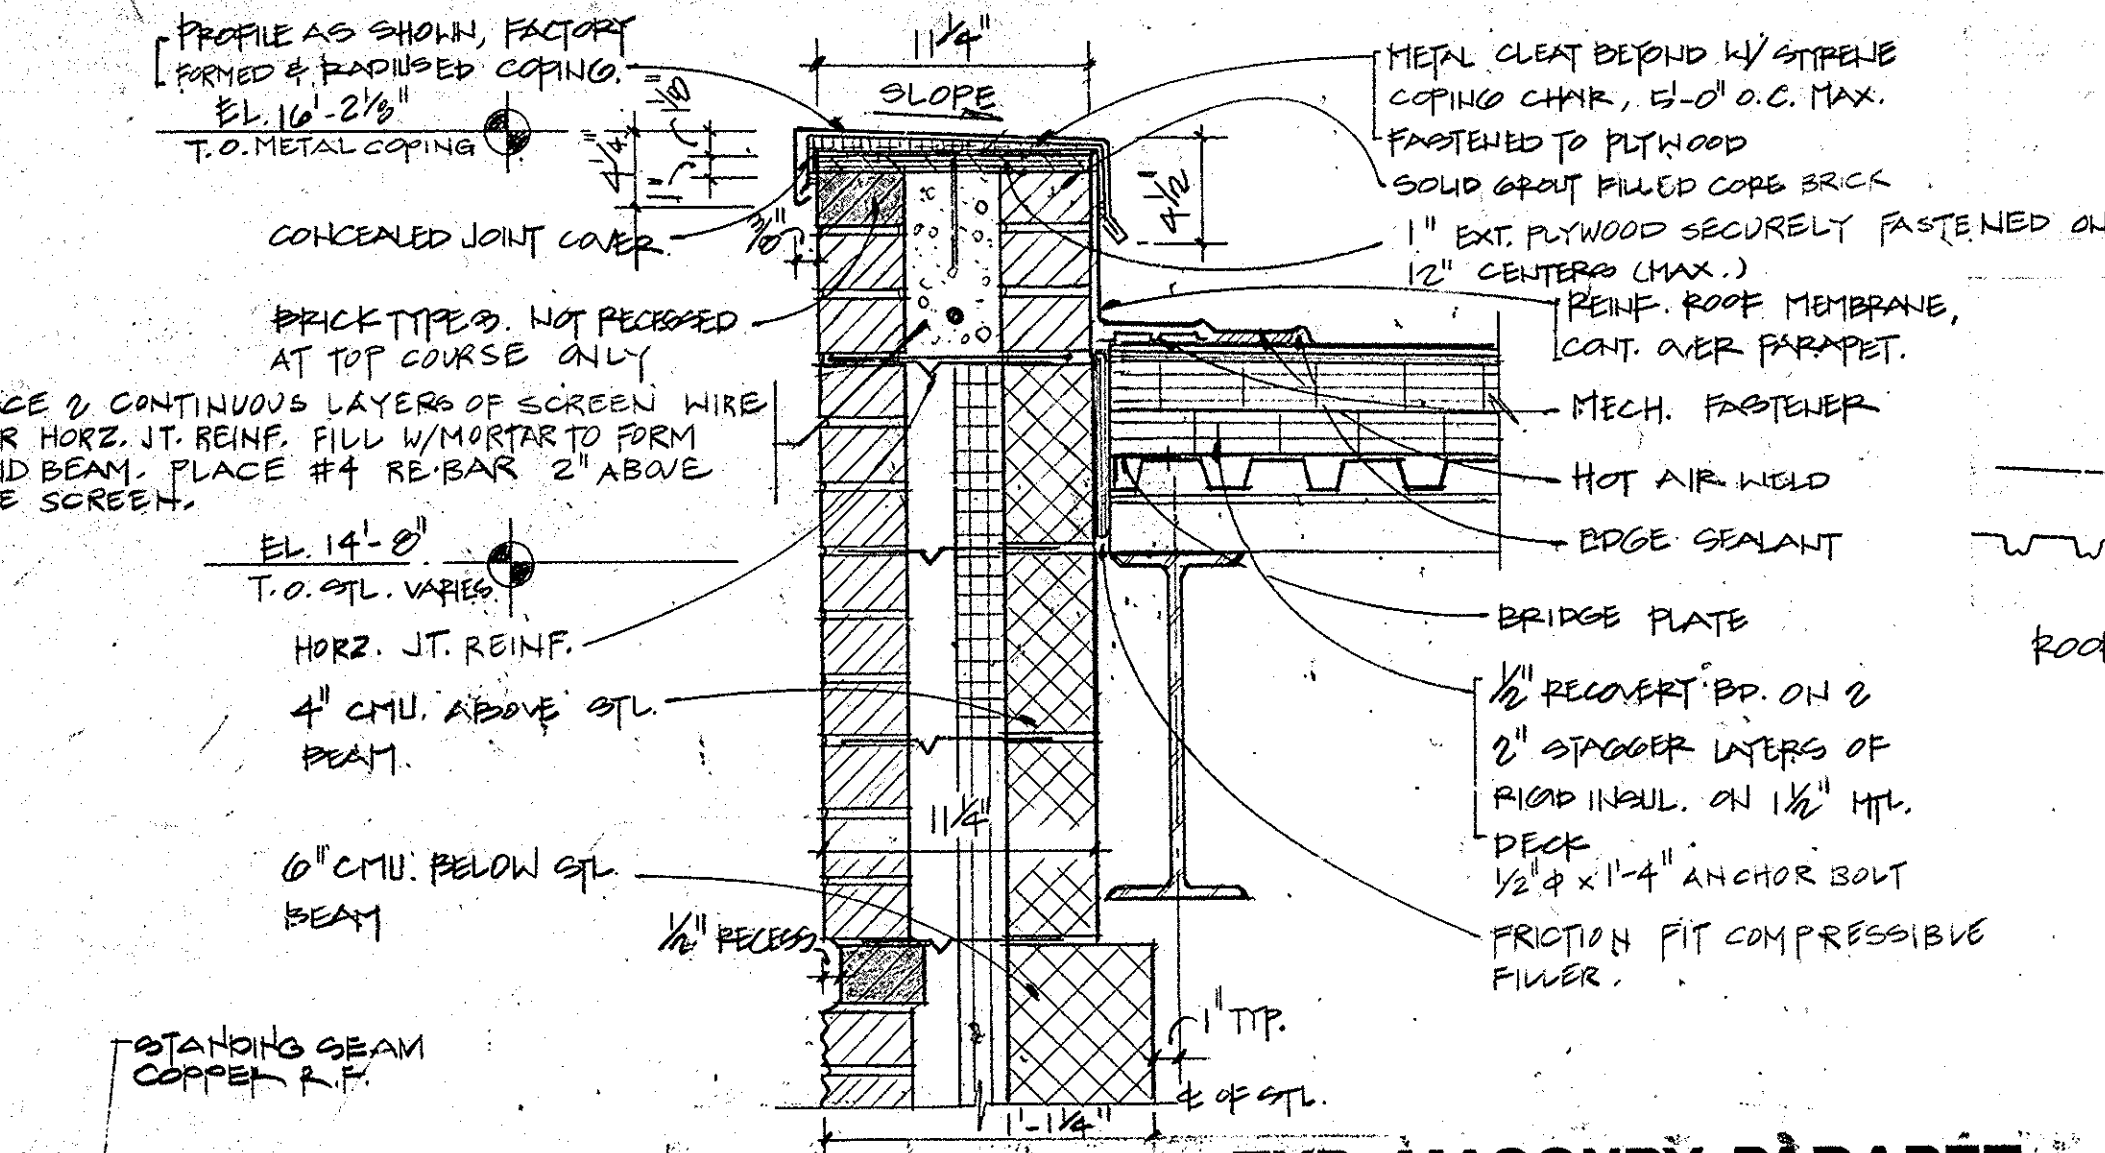 PROFILE AS SHOWN, FACTORY
FORMED & RADIUSED COPING.
EL. 16'-2 1/8"
T.O. METAL COPING
CONCEALED JOINT COVER
BRICK TYPE 3. NOT RECESSED
AT TOP COURSE ONLY
CE 2 CONTINUOUS LAYERS OF SCREEN WIRE
R HORZ. JT. REINF. FILL W/MORTAR TO FORM
ID BEAM. PLACE #4 RE-BAR 2" ABOVE
E SCREEN.
EL. 14'-8"
T.O. STL. VARIES
HORZ. JT. REINF.
4" CMU. ABOVE STL.
BEAM.
6" CMU. BELOW STL.
BEAM
1/2" RECESS
STANDING SEAM
COPPER R.F.
11 1/4"
SLOPE
4 1/4"
1"
3/8"
4 1/2"
11 1/4"
1" TYP.
℄ OF STL.
1'-1 1/4"
METAL CLEAT BEYOND W/ STYRENE
COPING CHAIR, 5'-0" O.C. MAX.
FASTENED TO PLYWOOD
SOLID GROUT FILLED CORE BRICK
1" EXT. PLYWOOD SECURELY FASTENED ON
12" CENTERS (MAX.)
REINF. ROOF MEMBRANE,
CONT. OVER PARAPET.
MECH. FASTENER
HOT AIR WELD
EDGE SEALANT
BRIDGE PLATE
1/2" RECOVERY BD. ON 2
2" STAGGER LAYERS OF
RIGID INSUL. ON 1 1/2" MTL.
DECK
1/2" ϕ x 1'-4" ANCHOR BOLT
FRICTION FIT COMPRESSIBLE
FILLER.
ROOF
MASONRY PARAPET